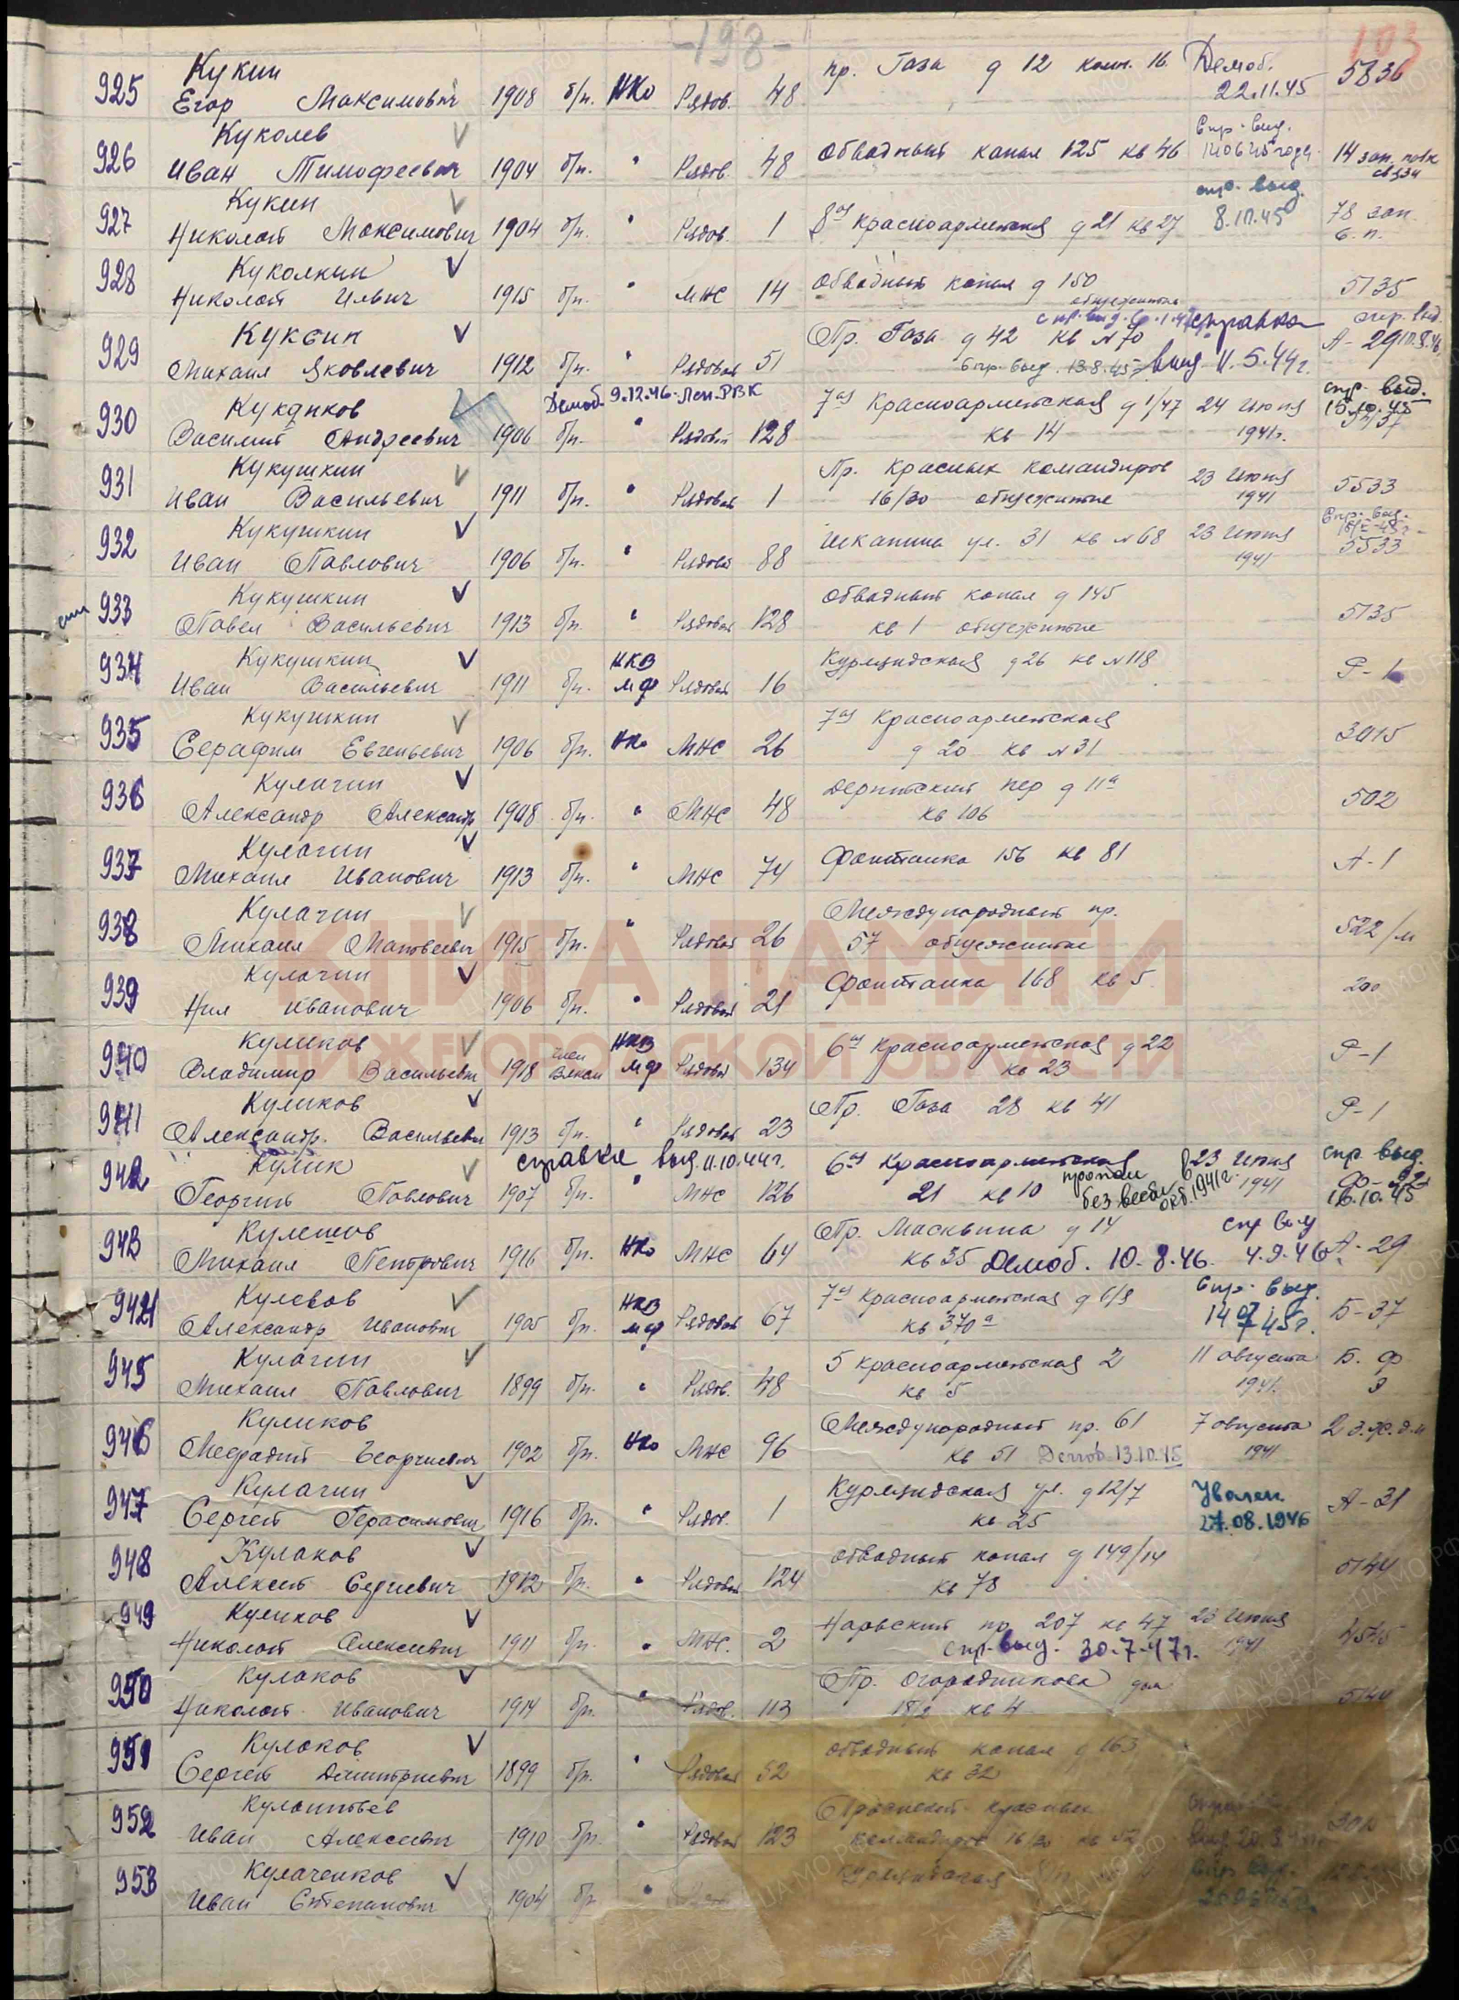 -198-
103
925 Кукин
Егор Максимович 1908 б/п. НКО Рядов. 48 пр. Газа д 12 комн. 16 Демоб. 22.11.45 5836
926 Куколев
Иван Тимофеевич 1904 б/п. " Рядов. 48 Обводный канал 125 кв 46 Спр. выд. 14 зап. полк связи
927 Кукин
Николай Максимович 1904 б/п. " Рядов. 1 8ая Красноармейская д 21 кв 27 спр. выд. 8.10.45 78 зап. с.п.
928 Куколкин
Николай Ильич 1915 б/п. " МНС 14 Обводный канал д 150 общежитие 5135
929 Куксин
Михаил Яковлевич 1912 б/п. " Рядовой 51 Пр. Газа д 42 кв № 70 справка выд. 11.5.44г. А-29
Спр. выд. 13.8.45
930 Кукдиков
Демоб. 9.12.46. Лен. РВК
Василий Андреевич 1906 б/п. " Рядовой 128 7ая Красноармейская д 1/47 кв 14 24 июня 1941г. спр. выд. 15.10.45
931 Кукушкин
Иван Васильевич 1911 б/п. " Рядовой 1 Пр. Красных командиров 16/30 общежитие 23 июня 1941 5533
932 Кукушкин
Иван Павлович 1906 б/п. " Рядовой 88 Шкапина ул. 31 кв № 68 23 июня 1941 Спр. выд. 5533
933 Кукушкин
Павел Васильевич 1913 б/п. " Рядовой 128 Обводный канал д 145 кв 1 общежитие 5135
934 Кукушкин
Иван Васильевич 1911 б/п. НКВМФ Рядовой 16 Курляндская д 26 кв № 118 Р-1
935 Кукушкин
Серафим Евгеньевич 1906 б/п. НКО МНС 26 7ая Красноармейская д 20 кв № 31 3015
936 Кулагин
Александр Александр 1908 б/п. " МНС 48 Дерптский пер д 11а кв 106 502
937 Кулагин
Михаил Иванович 1913 б/п. " МНС 74 Фонтанка 156 кв 81 А-1
938 Кулагин
Михаил Матвеевич 1915 б/п. " Рядовой 26 Международный пр. 57 общежитие 522/м
939 Кулагин
Нил Иванович 1906 б/п. " Рядовой 21 Фонтанка 168 кв 5 200
940 Куликов
Владимир Васильевич 1918 член ВЛКСМ НКВМФ Рядовой 134 6ая Красноармейская д 22 кв 23 Р-1
941 Куликов
Александр Васильевич 1913 б/п. " Рядовой 23 Пр. Газа 28 кв 41 Р-1
942 Кулик
справка выд. 11.10.44г.
Георгий Павлович 1907 б/п. " МНС 126 6ая Красноармейская 21 кв 10 пропал без вести в окт. 1941г. 23 июня 1941 спр. выд. 16.10.45
943 Кулешов
Михаил Петрович 1916 б/п. НКО МНС 64 Пр. Москвина д 14 кв 35 Демоб. 10.8.46. спр выд 4.9.46 А-29
944 Кулевов
Александр Иванович 1905 б/п. НКВМФ Рядовой 67 7ая Красноармейская д 6/8 кв 370а Спр. выд. 14 07 45г. Б-37
945 Кулагин
Михаил Павлович 1899 б/п. " Рядов. 48 5 Красноармейская 2 кв 5 11 августа 1941. Б. Ф
946 Куликов
Мефодий Георгиевич 1902 б/п. НКО МНС 96 Международный пр. 61 кв 51 Демоб. 13.10.45 7 августа 1941
947 Кулагин
Сергей Герасимович 1916 б/п. " Рядов. 1 Курляндская ул. д 12/7 кв 25 Уволен 27.08.1946 А-31
948 Кулаков
Алексей Сергиевич 1912 б/п. " Рядовой 124 Обводный канал д 149/14 кв 78 5144
949 Куликов
Николай Алексеевич 1911 б/п. " МНС. 2 Нарвский пр. 207 кв 47 23 июня 1941 4545
спр. выд. 30.7.47г.
950 Кулаков
Николай Иванович 1914 б/п. " Рядов. 113 Пр. Огородникова дом 18/2 кв 4 5144
951 Кулаков
Сергей Дмитриевич 1899 б/п. " Рядовой 52 Обводный канал д 163 кв 32
952 Кулантьев
Иван Алексеевич 1910 б/п. " Рядовой 123 Проспект Красных командиров 16/30 кв 52
953 Кулаченков
Иван Степанович 1904 б/п " Курляндская
КНИГА ПАМЯТИ
НИЖЕГОРОДСКОЙ ОБЛАСТИ